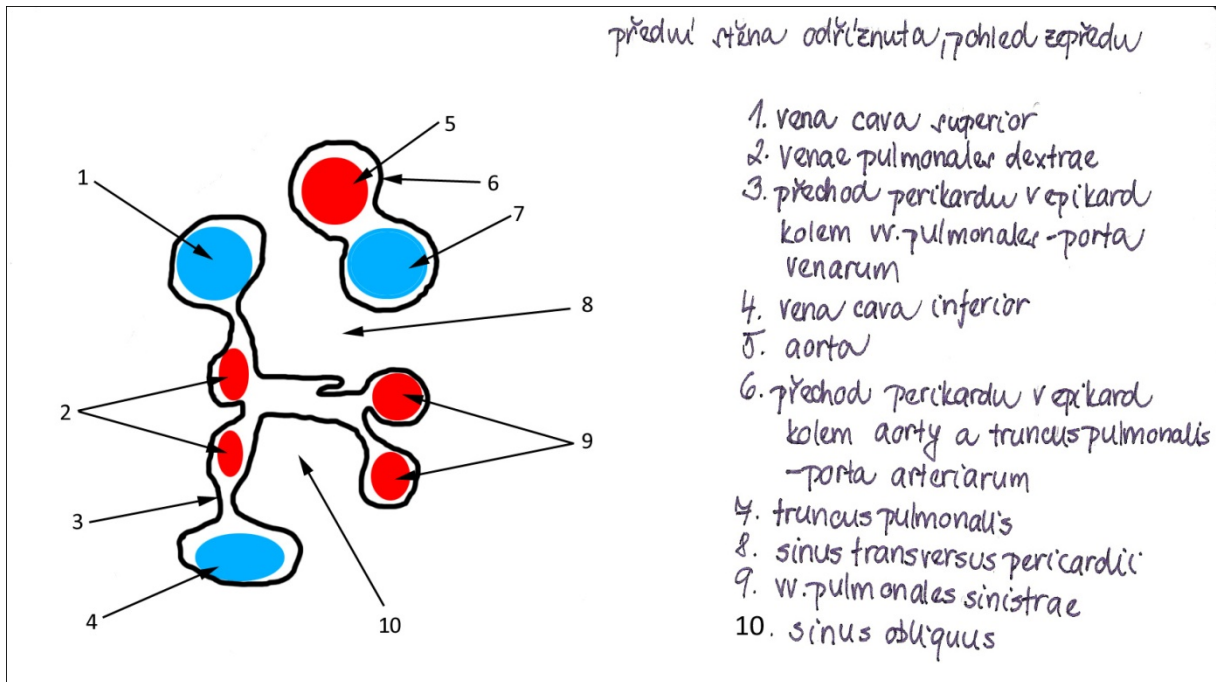 přední stěna odříznuta, pohled zepředu
1. vena cava superior
2. venae pulmonales dextrae
3. přechod perikardu v epikard
kolem vv. pulmonales - porta
venarum
4. vena cava inferior
5. aorta
6. přechod perikardu v epikard
kolem aorty a truncus pulmonalis
- porta arteriarum
7. truncus pulmonalis
8. sinus transversus pericardii
9. vv. pulmonales sinistrae
10. sinus obliquus
5
1
6
7
8
2
9
3
4
10